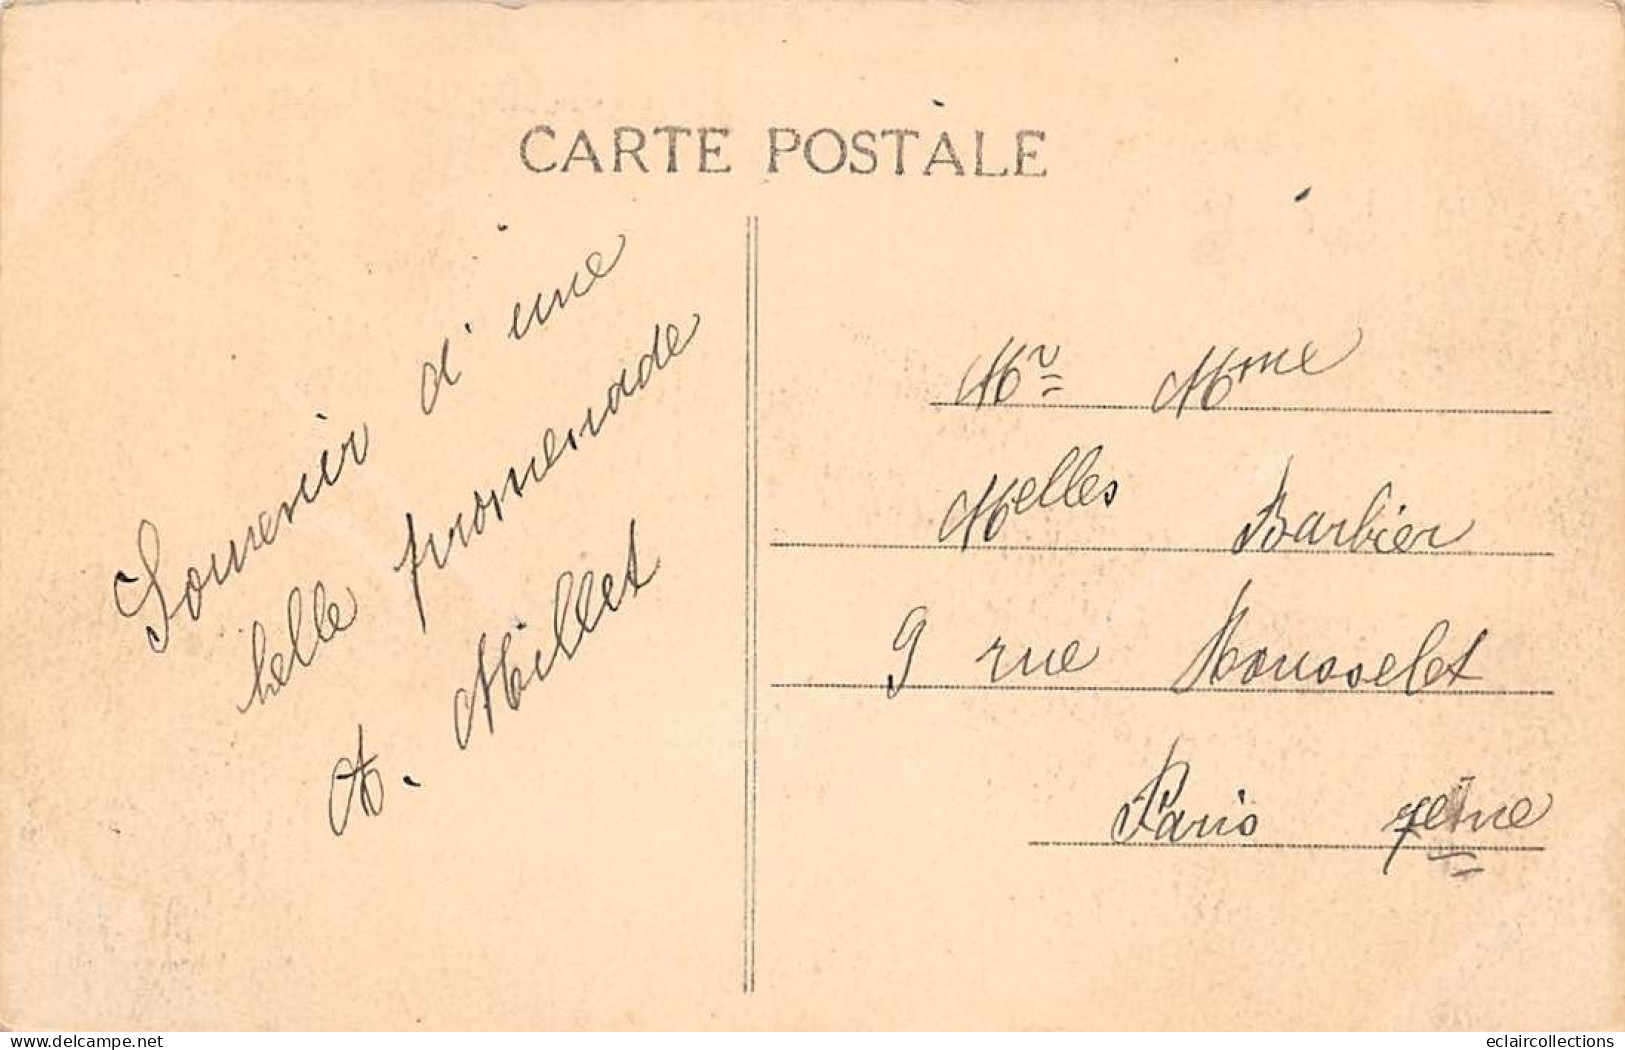 CARTE POSTALE
Souvenir d'une
belle promenade
A. Millet
Mr Mme
Melles Barbier
9 rue Rousselet
Paris 7eme
delcampe.net
eclaircollections